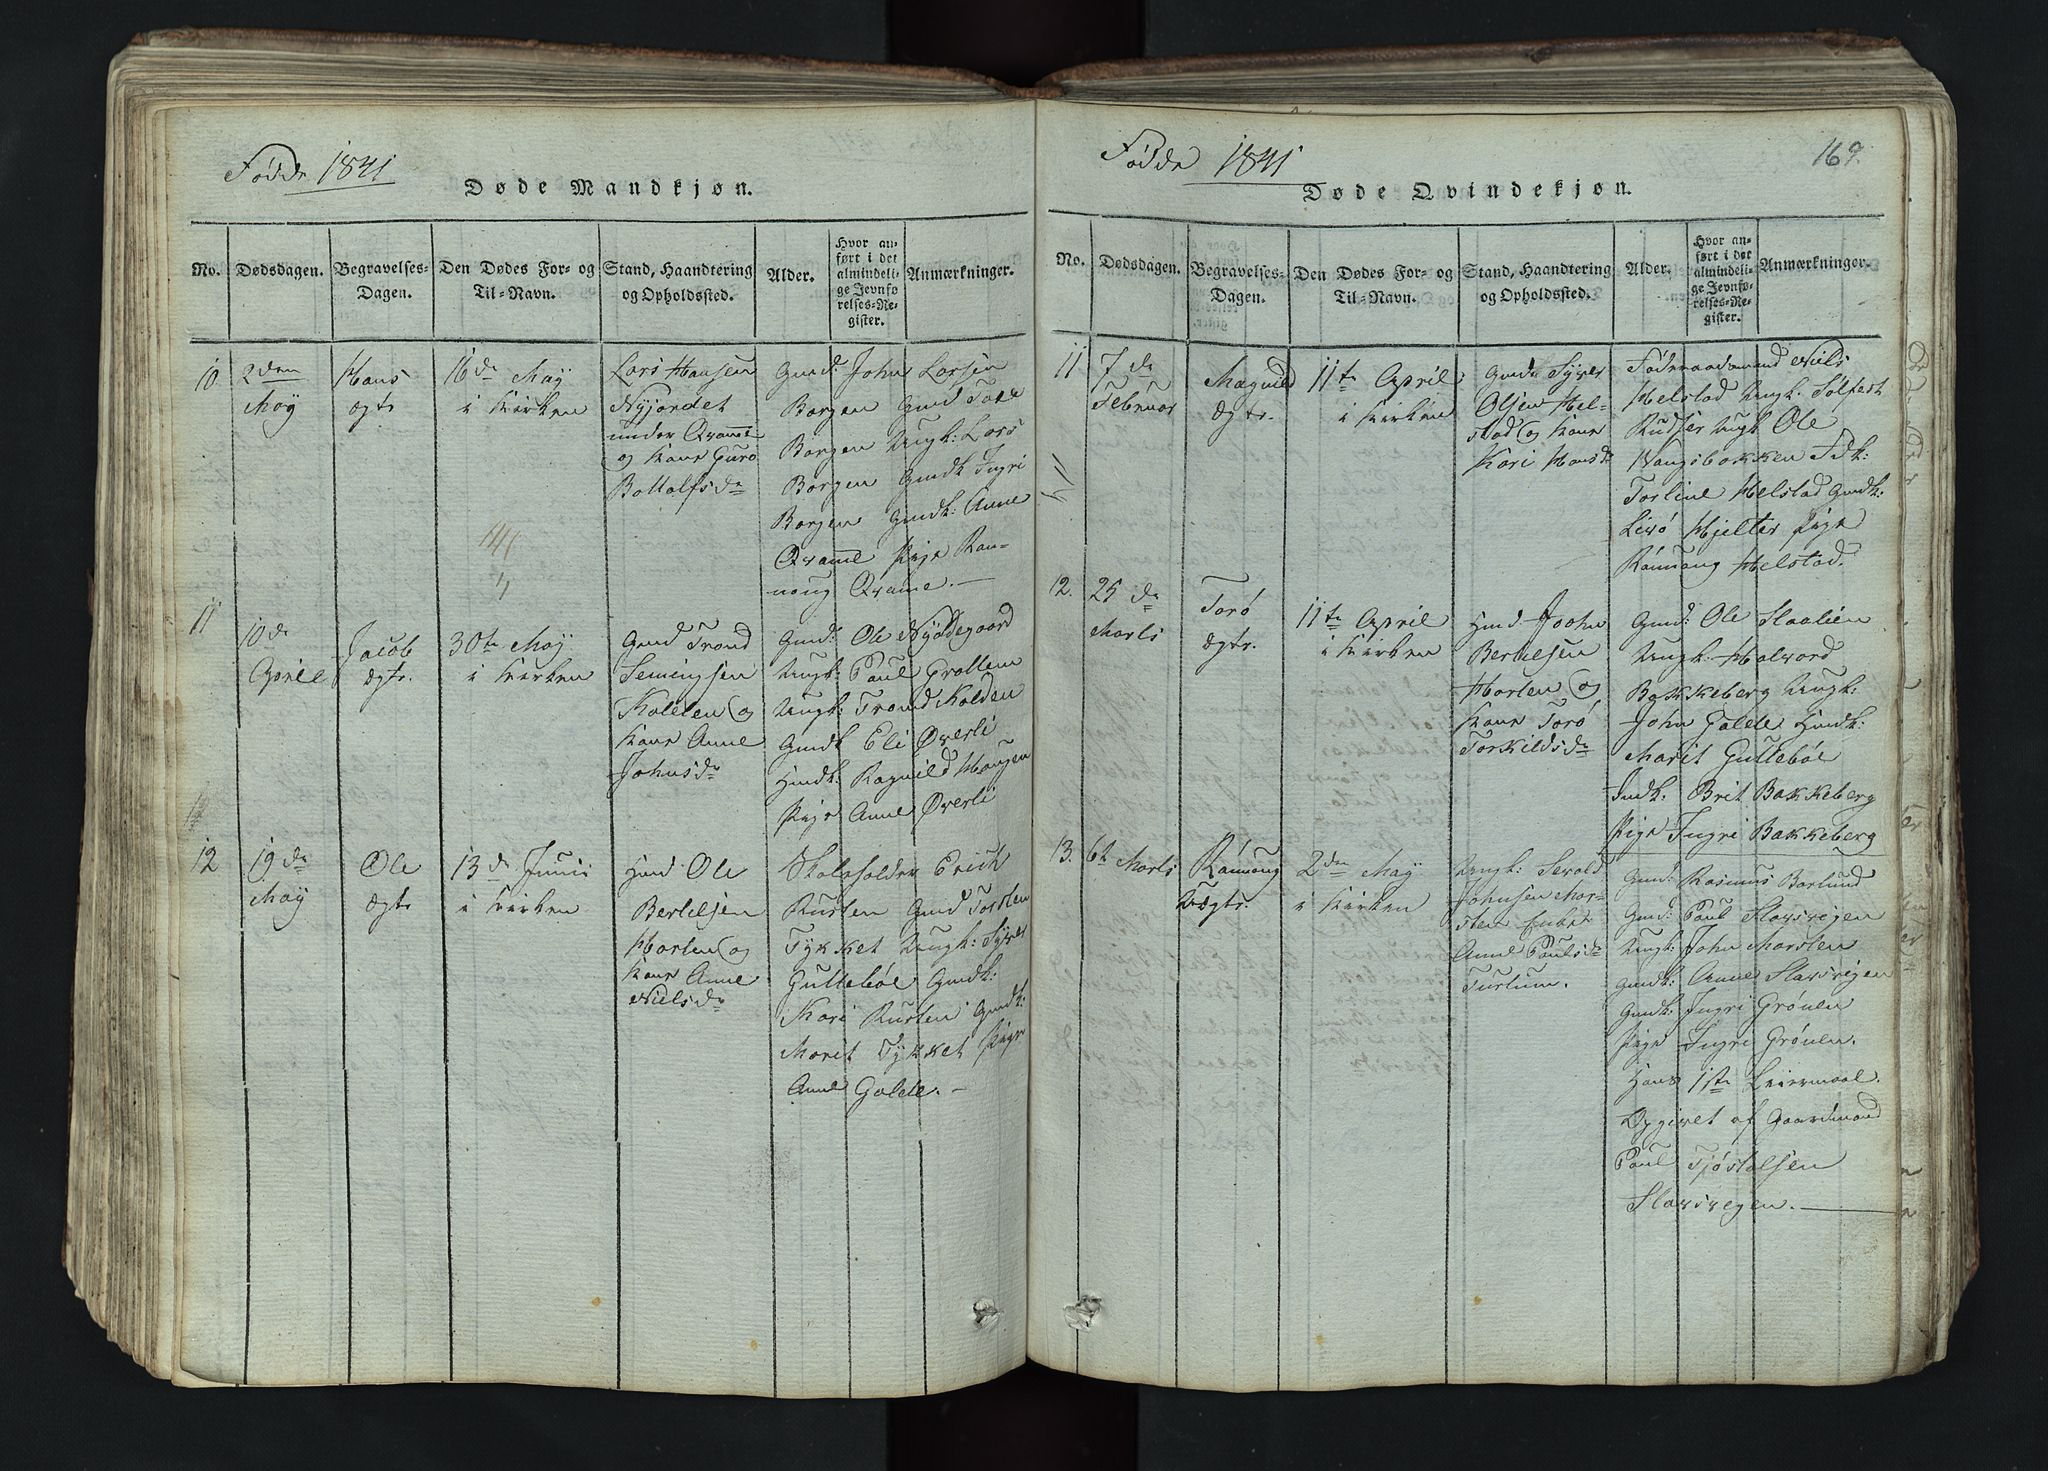 Fødde 1841
Døde Mandkjøn.
No.
Dødsdagen.
Begravelses-
Dagen.
Den Dødes For- og
Til-Navn.
Stand, Haandtering
og Opholdssted.
Alder.
Hvor an-
ført i det
almindeli-
ge Jevnfø
relses-Re-
gister.
Anmærkninger.
10
2den
May
Hans
ægte
16de May
i Kirken
Lars Hansen
Nyjordet
under Qvame
og Kone Guro
Bottolfsdr
Gmd: John Larsen
Borgen Gmd Tore
Borgen Ungk: Lars
Borgen Gmdk Ingri
Borgen Gmdk: Anne
Qvame Pige Ran-
noug Qvame. —
11
10de
April
Jacob
ægte.
30te May
i Kirken
Gmd Trond
Semingsen
Kolden og
Kone Anne
Johnsdr
Gmd: Ole Nyødegaard
Ungk: Paul Grottem
Ungk: Trond Kolden
Gmdk Eli Øverli
Hmdk: Ragnild Haugen
Pige Anne Øverli
12
19de
May
Ole
ægte
13de Junii
i Kirken
Hmd Ole
Bertelsen
Horten og
Kone Anne
Nielsdr
Skoleholder Erich
Rusten Gmd Torsten
Tykket Ungk: Syver
Guttebøe Gmdk:
Kari Rusten Gmdk:
Marit Tykket Pige
Anne Galde. —
Fødde 1841
169.
Døde Qvindekjøn.
No.
Dødsdagen.
Begravelses-
Dagen.
Den Dødes For- og
Til-Navn.
Stand, Haandtering
og Opholdssted.
Alder.
Hvor an-
ført i det
almindeli-
ge Jevnfø-
relses-Re-
gister.
Anmærkninger.
11
7de
Februar
Magnild
ægte.
11te April
i Kirken
Gmd Syver
Olsen Hel-
stad og Kone
Kari Hansdr
Føderaadsmand Niels
Helstad Ungk. Solfest
Rudser Ungk Ole
Vangsbakken Fdk:
Torline Helstad Gmdk:
Hjelter Pige
Rannoug Helstad.
12.
25de
Marts
Torø
ægte.
11te April
i Kirken
Hmd John
Bertelsen
Horten og
Kone Torø
Torkildsdr
Gmd: Ole Staalien
Ungk: Halvord
Bakkeberg Ungk:
John Galde Hmdk:
Marit Guttebøe
Brit Bakkeberg
Pige Ingri Bakkeberg
13.
6te Marts
Rannoug
Uægte.
2den May
i Kirken
Ungk: Sevald
Johnsen Mar-
sten Enke
Anne Paulsdr
Turtum.
Gmd: Rasmus Barlund
Gmd: Paul Slarsvigen
Ungk: John Marsten
Gmdk: Anne Slarsvigen
Gmdk: Ingri Grønen
Pige Ingri Grønen.
Hans 1ste Leiermaal.
Opgivet af Gaardmand
Paul Tjøstelsen
Slarsvegen. —